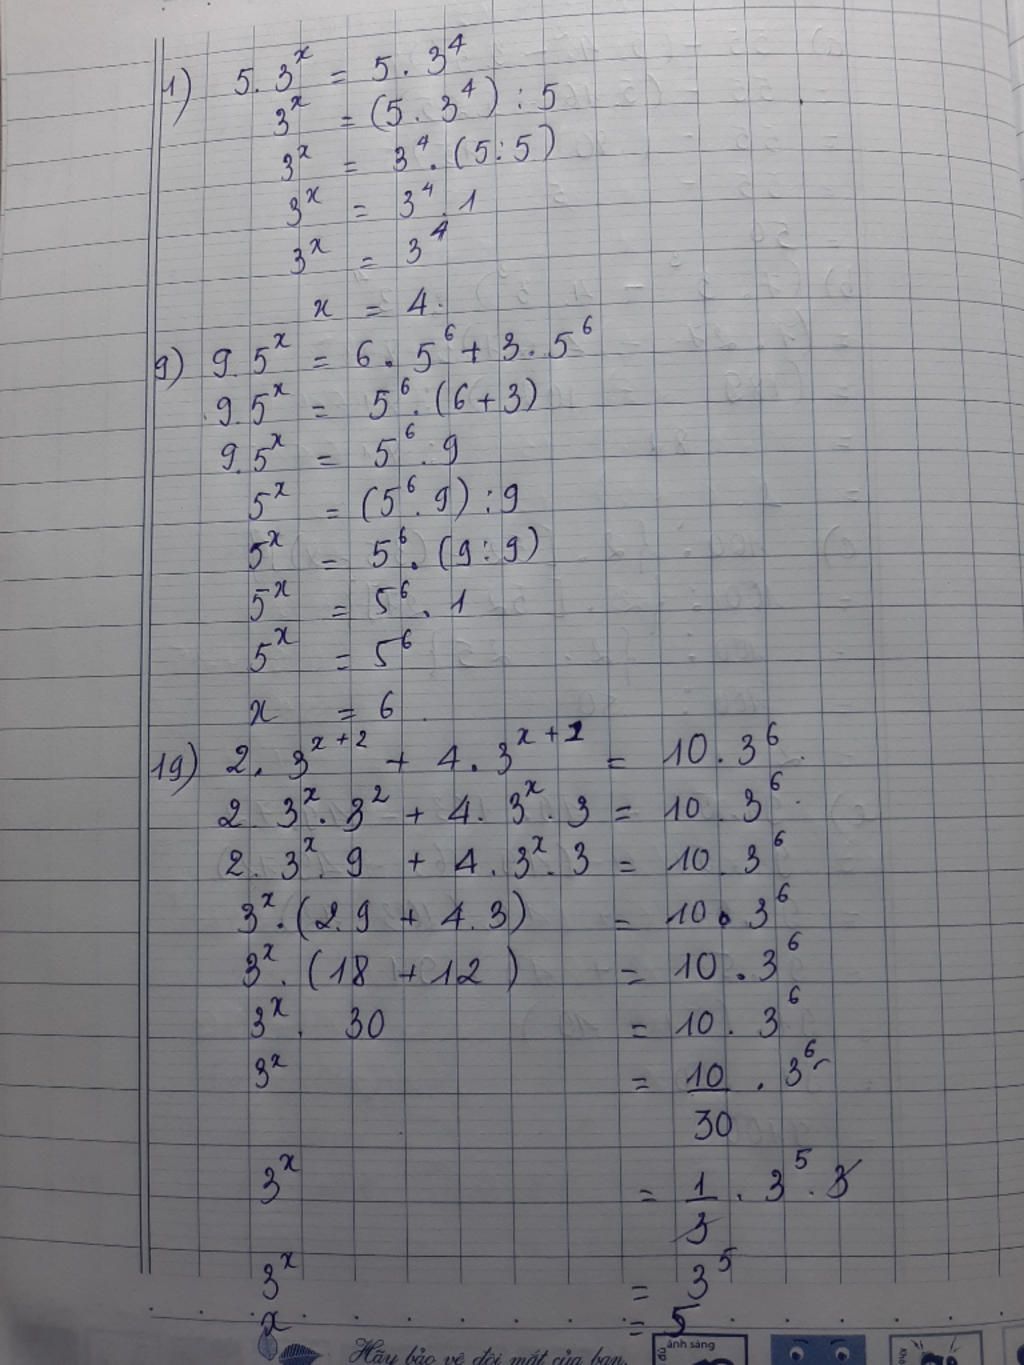 1) 5.3^x = 5.3^4
3^x = (5.3^4) : 5
3^x = 3^4.(5:5)
3^x = 3^4.1
3^x = 3^4
x = 4.
9) 9.5^x = 6.5^6 + 3.5^6
9.5^x = 5^6.(6+3)
9.5^x = 5^6.9
5^x = (5^6.9) : 9
5^x = 5^6.(9:9)
5^x = 5^6.1
5^x = 5^6
x = 6
19) 2.3^{x+2} + 4.3^{x+1} = 10.3^6.
2.3^x.3^2 + 4.3^x.3 = 10.3^6.
2.3^x.9 + 4.3^x.3 = 10.3^6
3^x.(2.9 + 4.3) = 10.3^6
3^x.(18 + 12) = 10.3^6
3^x.30 = 10.3^6
3^x = 10/30 . 3^6
3^x = 1/3 . 3^5 . 3
3^x = 3^5
x = 5
Hãy bảo vệ đôi mắt của bạn.
đủ
ánh sáng